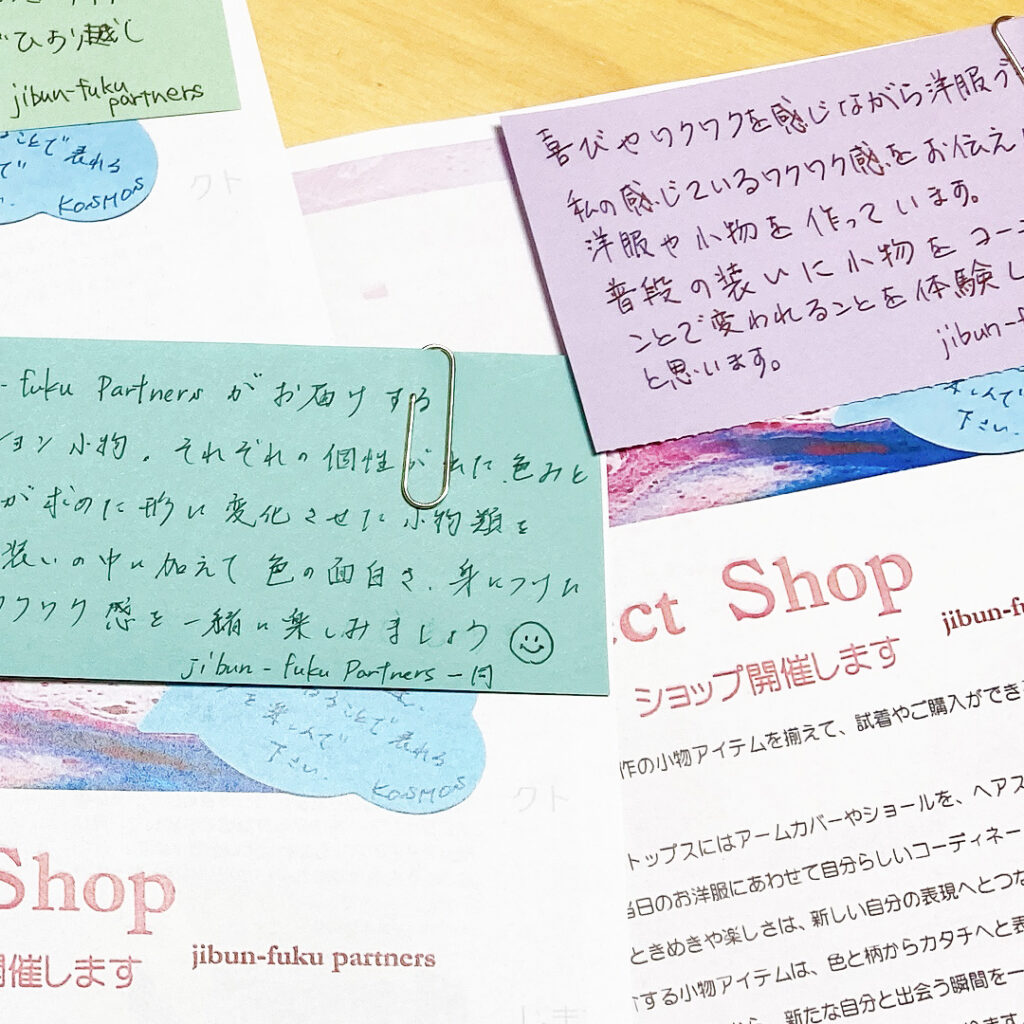 がひおり越し
jibun-fuku
partners
ことで
表れる
KOSMOS
クト
喜びやワクワクを感じながら洋服づ
私の感じているワクワク感をお伝え
洋服や小物を作っています。
普段の装いに小物をコーデ
ことで変われることを体験し
と思います。
jibun-f
下さい.
-fuku Partners がお届けする
ション小物. それぞれの個性が出た色みと
が求めた形に変化させた小物類を
装いの中に加えて色の面白さ、身につけた
クワク感を一緒に楽しみましょう
jibun-fuku Partners 一同
ことで表れる
を楽しんで
下さい.
KOSMOS
クト
ct Shop
jibun-fu
ショップ開催します
作の小物アイテムを揃えて、試着やご購入ができ
トップスにはアームカバーやショールを、ヘアス
当日のお洋服にあわせて自分らしいコーディネー
ときめきや楽しさは、新しい自分の表現へとつな
する小物アイテムは、色と柄からカタチへと表
新たな自分と出会う瞬間を一
Shop
jibun-fuku partners
開催します